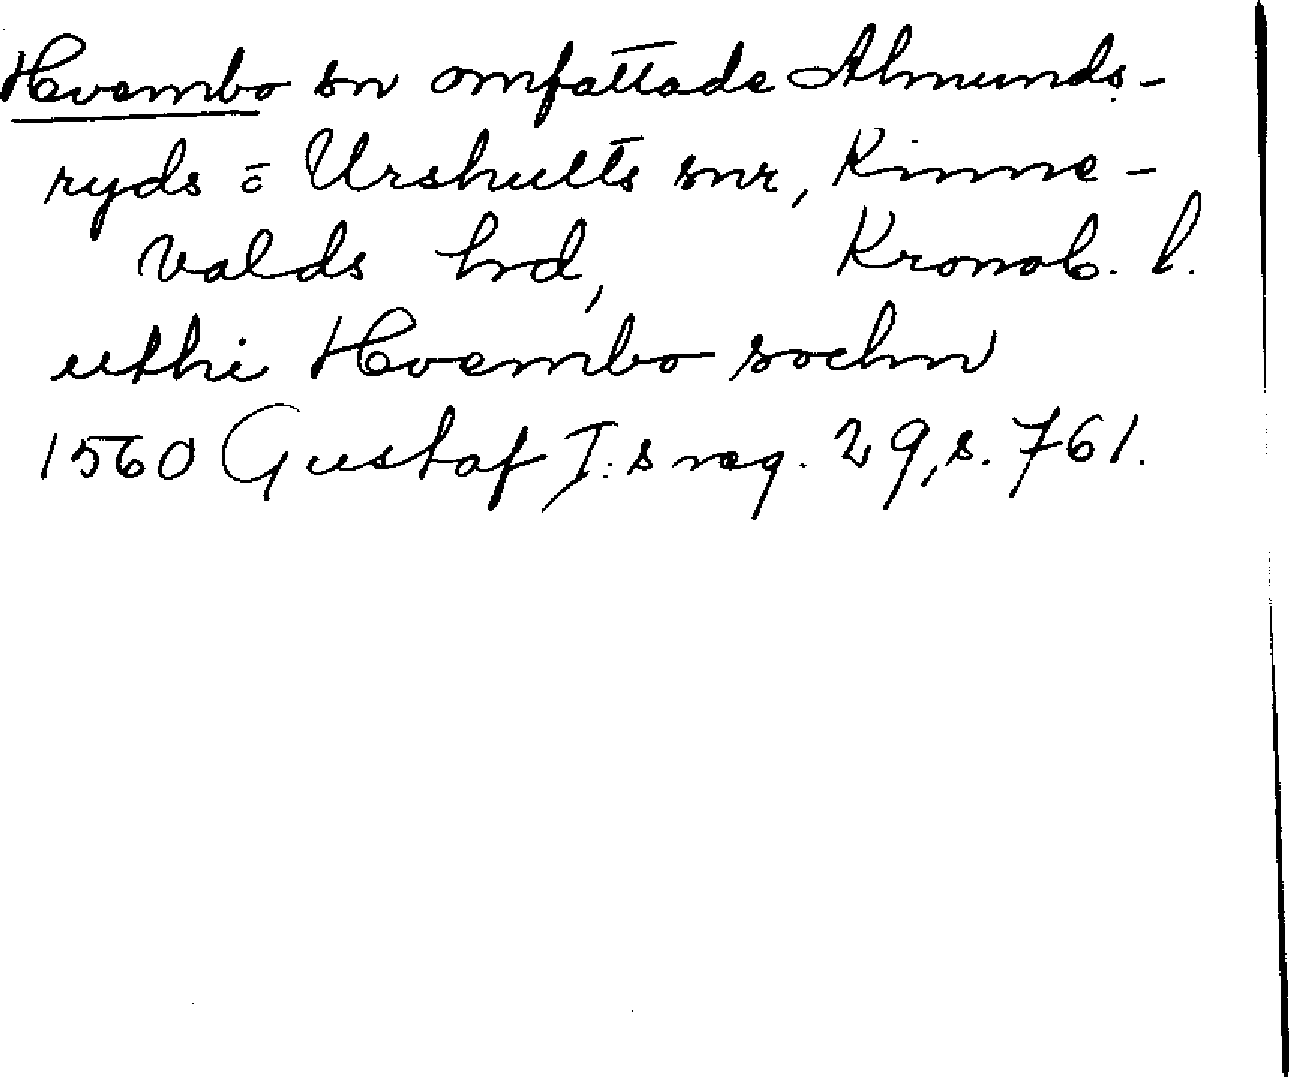 Hvembo sn omfattade Almunds-
ryds o Urshults snr, Kinne-
valds hrd, Kronob. l.
uthi Hvembo sochn
1560 Gustaf I:s reg. 29, s. 761.